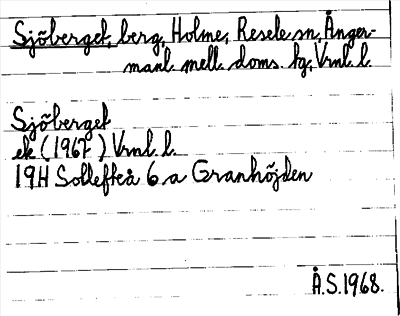 Sjöberget, berg, Holme, Resele sn, Ånger-
manl. mell. doms. hg, Vrnl. l.
Sjöberget
ek (1967) Vrnl. l.
19H Sollefteå 6 a Granhöjden
Å.S. 1968.